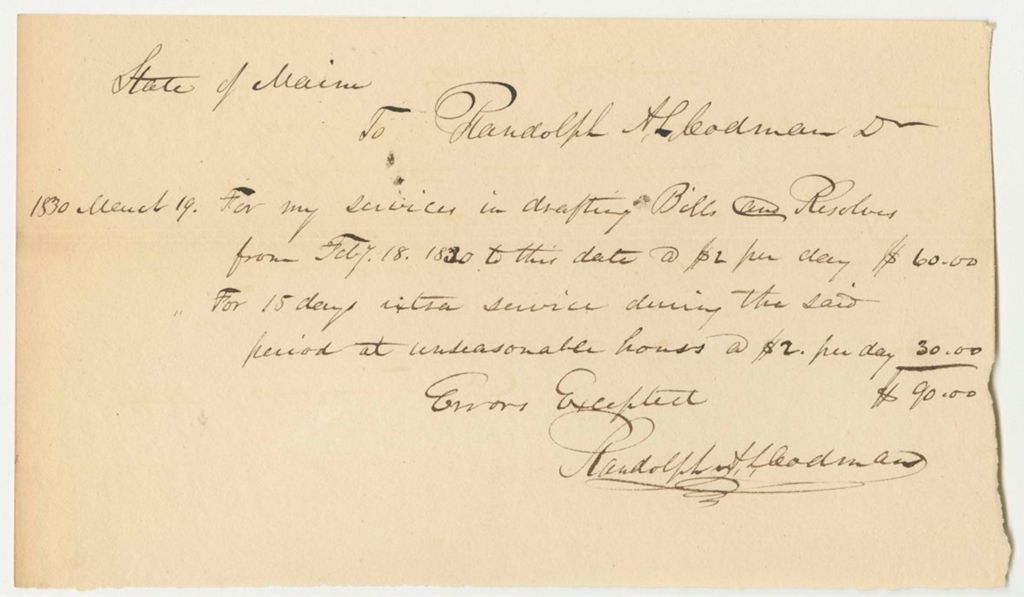 State of Maine
To Randolph A. L. Codman Dr
1830 March 19. For my services in drafting Bills and Resolves
from Feby. 18. 1830 to this date @ $2 per day $ 60.00
„ For 15 days extra service during the said
period at unseasonable hours @ $2. per day 30.00
Errors Excepted $ 90.00
Randolph A. L. Codman